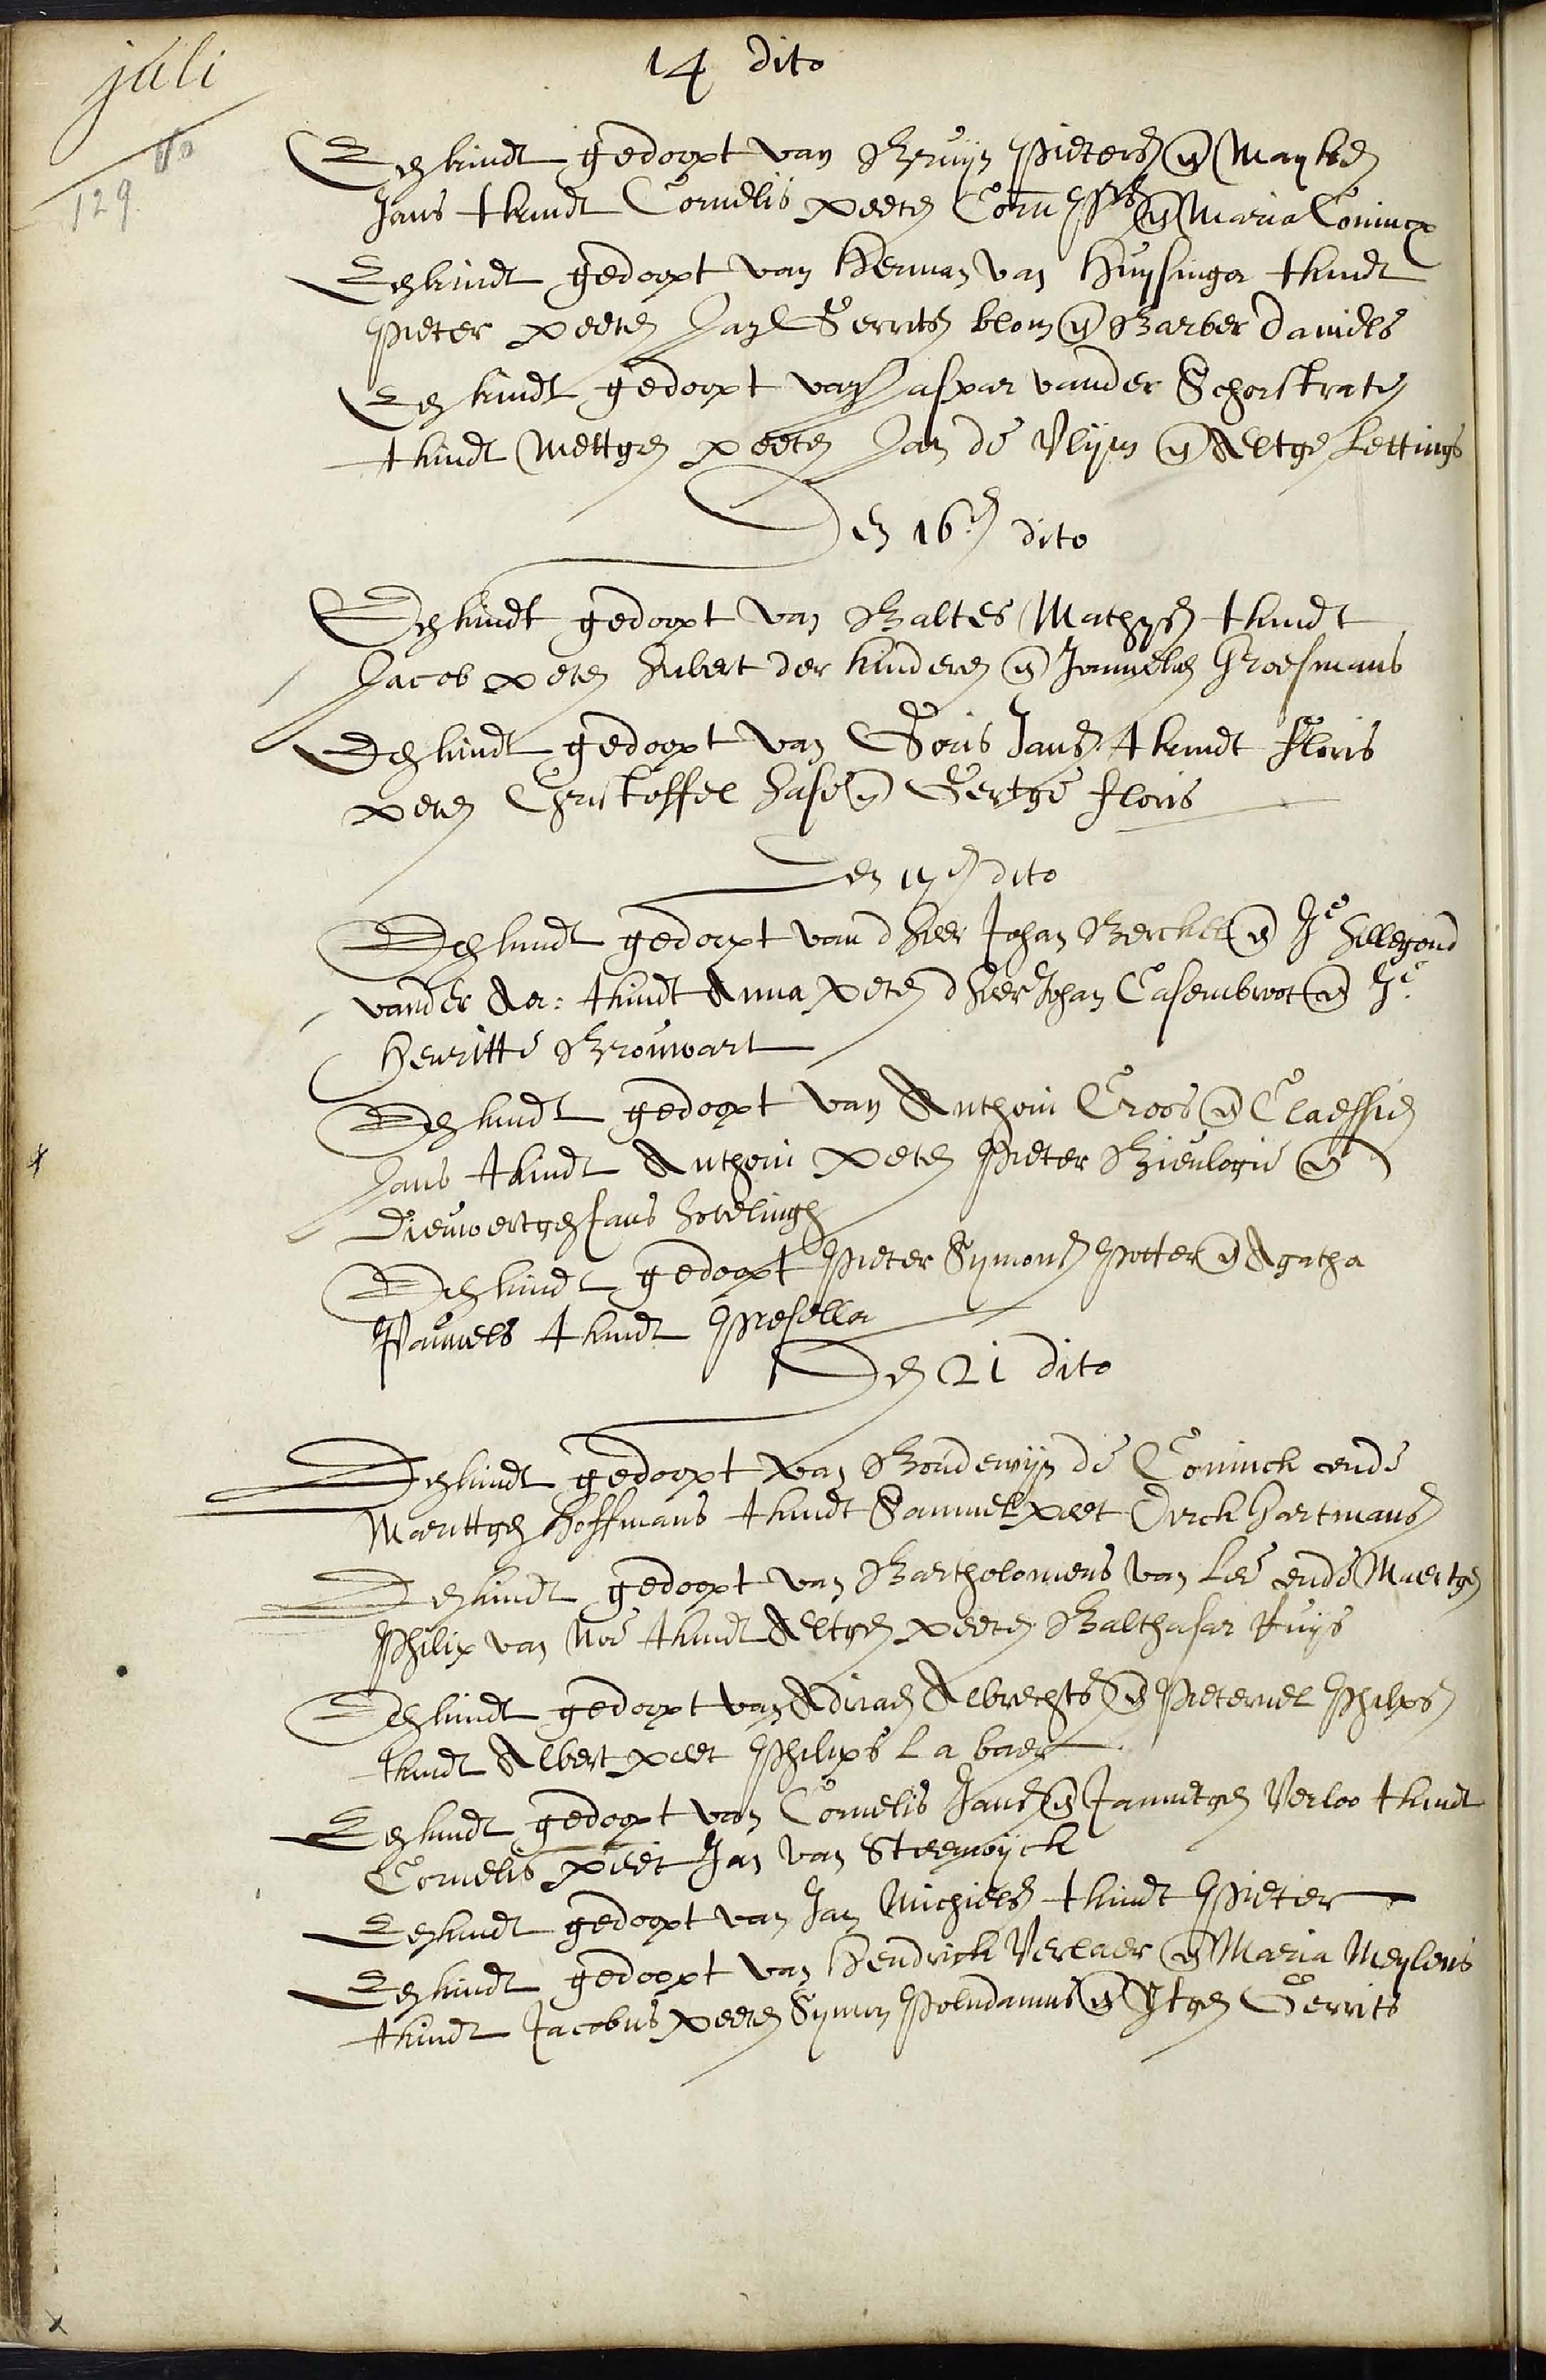 juli
129
14 dito
Een kindt gedoopt van Bruijn Pieters en Mayken
Jans tkindt Cornelis peeten Corn en Maria Coninx
Een kindt gedoopt van Herman van Huysinga tkindt
Pieter peeten Jan Gerrits blom en Barber Daniels
Een kindt gedoopt van Jaspar vander Schorstraten
tkindt Mettgen peeten Jan de Vlijm en Aeltge Lettings
Den 16en dito
Een kindt gedoopt van Baltes Mathysen tkindt
Jacob peten Hubert der kinderen en Janneken Groesmans
Een kindt gedoopt van Goris Jansen tkindt floris
peten Christoffel Hase en Gertge floris
Den 17en dito
Een kindt gedoopt van d heer Johan Berckel en Je Hillegond
vander Aa: tkindt Anna peten d heer Johan Casembroot en Je.
Henritte Brouwart
Een kindt gedoopt van Anthoni Croos en Claessien
Jans tkindt Anthoni peten Pieter en
Dieuwertgen Jans
Een kindt gedoopt Pieter Symonsen Potter en Agatha
Pauwels tkindt Presella
Den 21 dito
Een kindt gedoopt van Boudewijn de Coninck ende
Marittgen Hoffmans tkindt Samuel peet Dirck Hartmans
Een kindt gedoopt van Bartholomeus van Lee ende Maertgen
Philix van Noe tkindt Aeltgen peeten Balthasar Ruijs
Een kindt gedoopt van Adriaen Albrechts en Pieternel Philps
tkindt Albert peet Philips La baer
Een kindt gedoopt van Cornelis Jansen en Jannetgen Verloo tkindt
Cornelis peet Jan van Steenwijck
Een kindt gedoopt van Jan Michiels tkindt Pieter
Een kindt gedoopt van Hendrick Verlaer en Maria Meylens
tkindt Jacobus peeten Symon Poludamus en Ytgen Gerrits